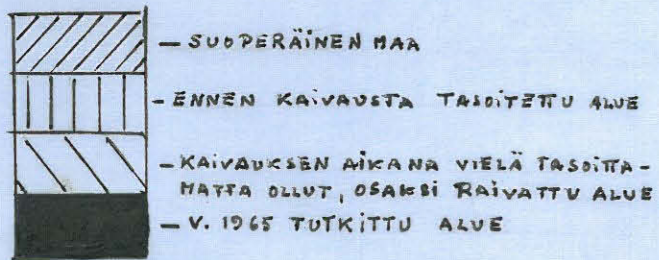 — SUOPERÄINEN MAA
- ENNEN KAIVAUSTA TASOITETTU ALUE
- KAIVAUKSEN AIKANA VIELÄ TASOITTA-
MATTA OLLUT, OSAKSI RAIVATTU ALUE
— V. 1965 TUTKITTU ALUE